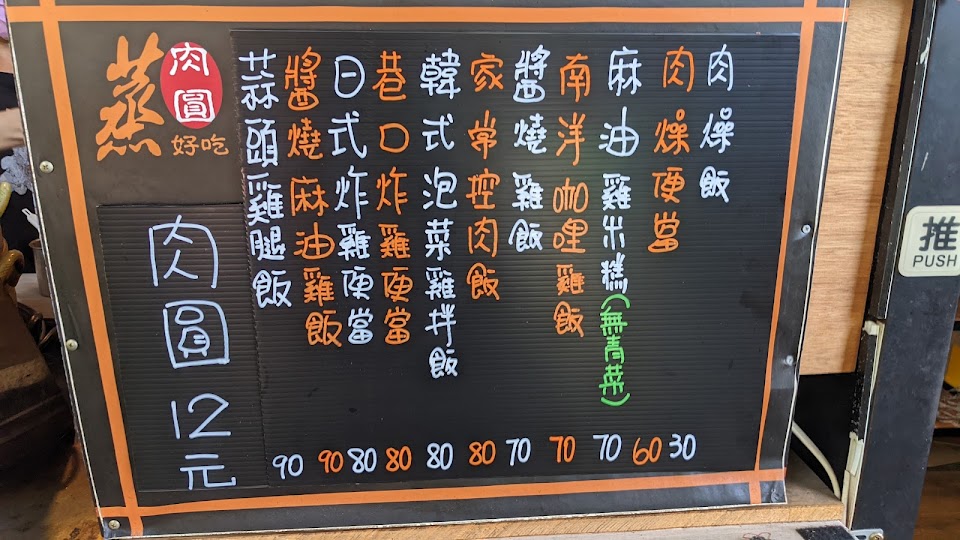 肉燥飯 30
肉燥便當 60
麻油雞米糕(無青菜) 70
南洋咖哩雞飯 70
醬燒雞飯 70
家常控肉飯 80
韓式泡菜雞拌飯 80
巷口炸雞便當 80
日式炸雞便當 80
醬燒麻油雞飯 90
蒜頭雞腿飯 90
蒸
肉圓
好吃
肉圓12元
推
PUSH